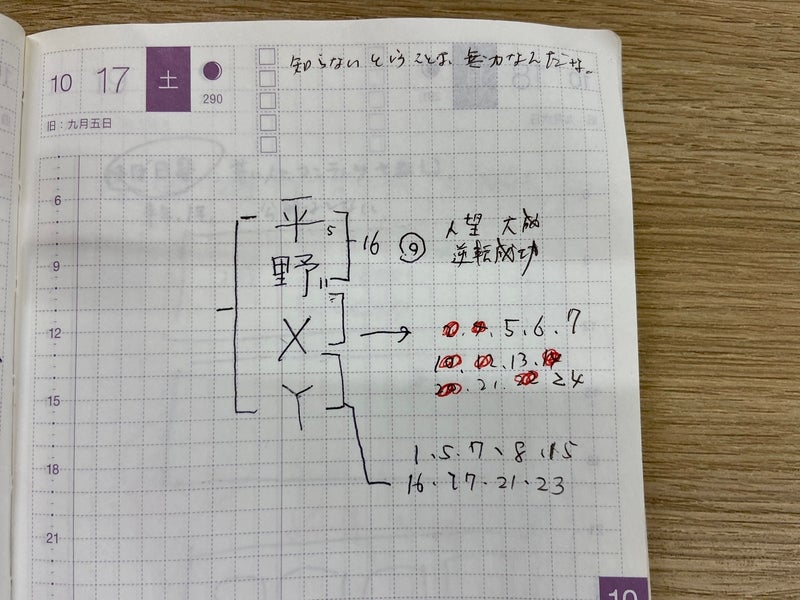 10 17 土
290
旧：九月五日
知らないということは、無力なんだな。
6
9
12
15
18
21
平 5
野 11
X
Y
16 ⑨
人望 大成
逆転成功
5.6.7
13
21. 24
1、5、7、8、15
16、17、21、23
10